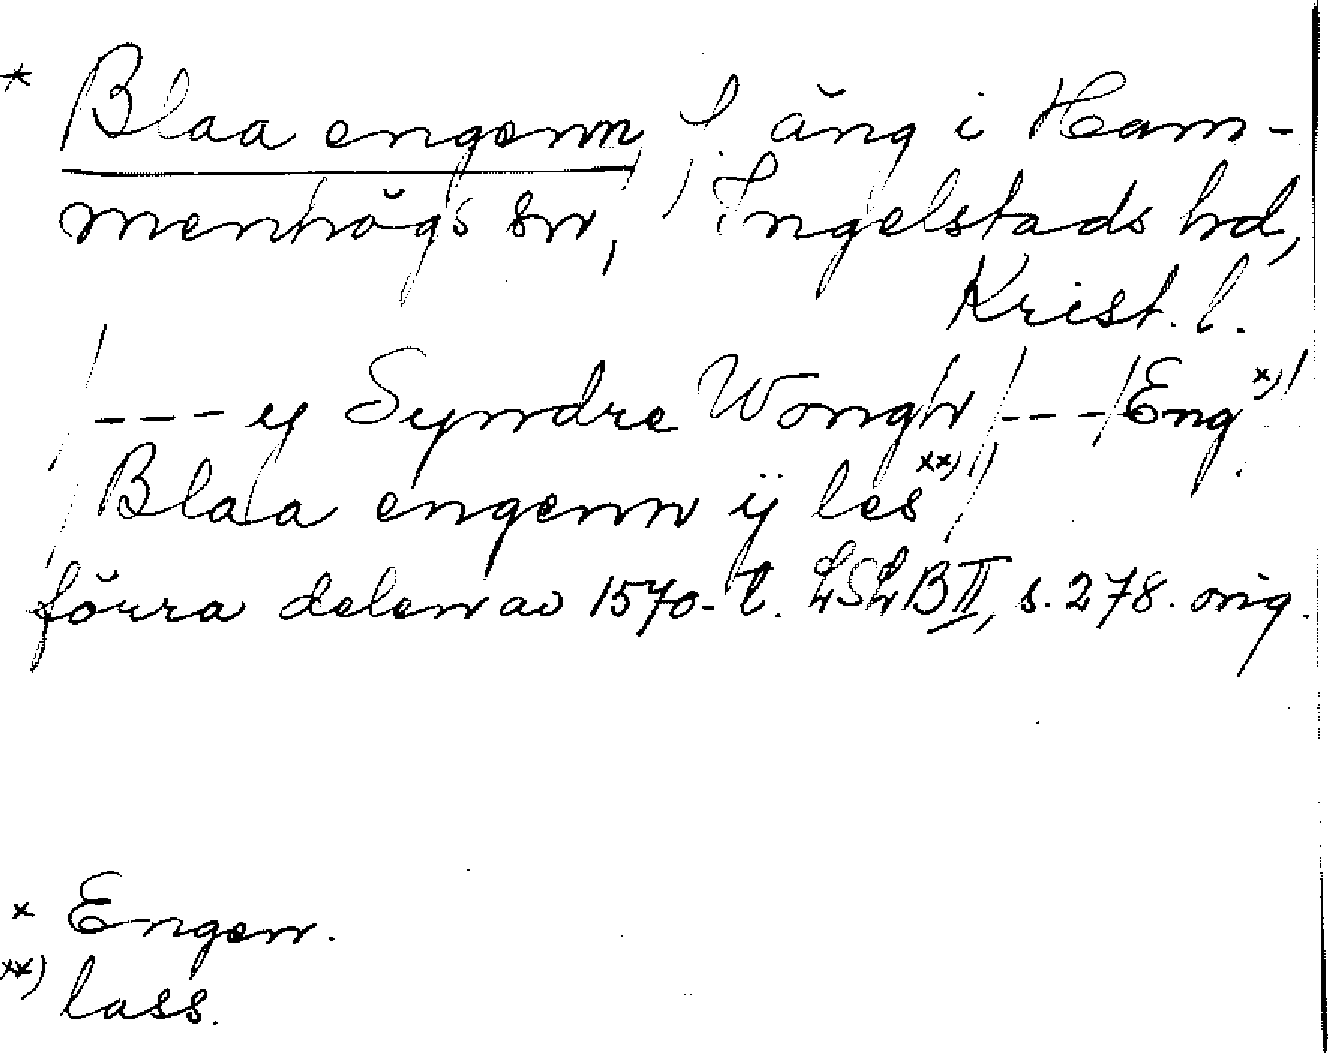 * Blaa engenn, f. äng i Ham-
menhögs sn, Ingelstads hd,
Krist. l.
/---y Syndre Wongh/---/Eng x)/
/Blaa engenn ÿ les xx)/
förra delen av 1570-t. LSLB II, s. 278. orig.
x Engen.
xx) lass.